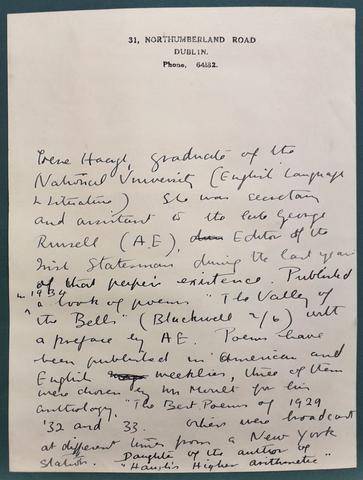 31, NORTHUMBERLAND ROAD
DUBLIN.
Phone, 64182.
Irene Haugh, graduate of the
National University (English Language
& Literature) She was secretary
and assistant to the late George
Russell (A.E), Editor of the
Irish Statesman during the last year
of that paper's existence. Published
in 1934
a book of poems "The Valley of
the Bells" (Blackwell 2/6) with
a preface by AE. Poems have
been published in American and
English weeklies, three of them
were chosen by Moult for his
anthology, "The Best Poems of 1929
'32 and 33. Others were broadcast
at different times from a New York
Station. Daughter of the author of
"Haugh's Higher arithmetic"